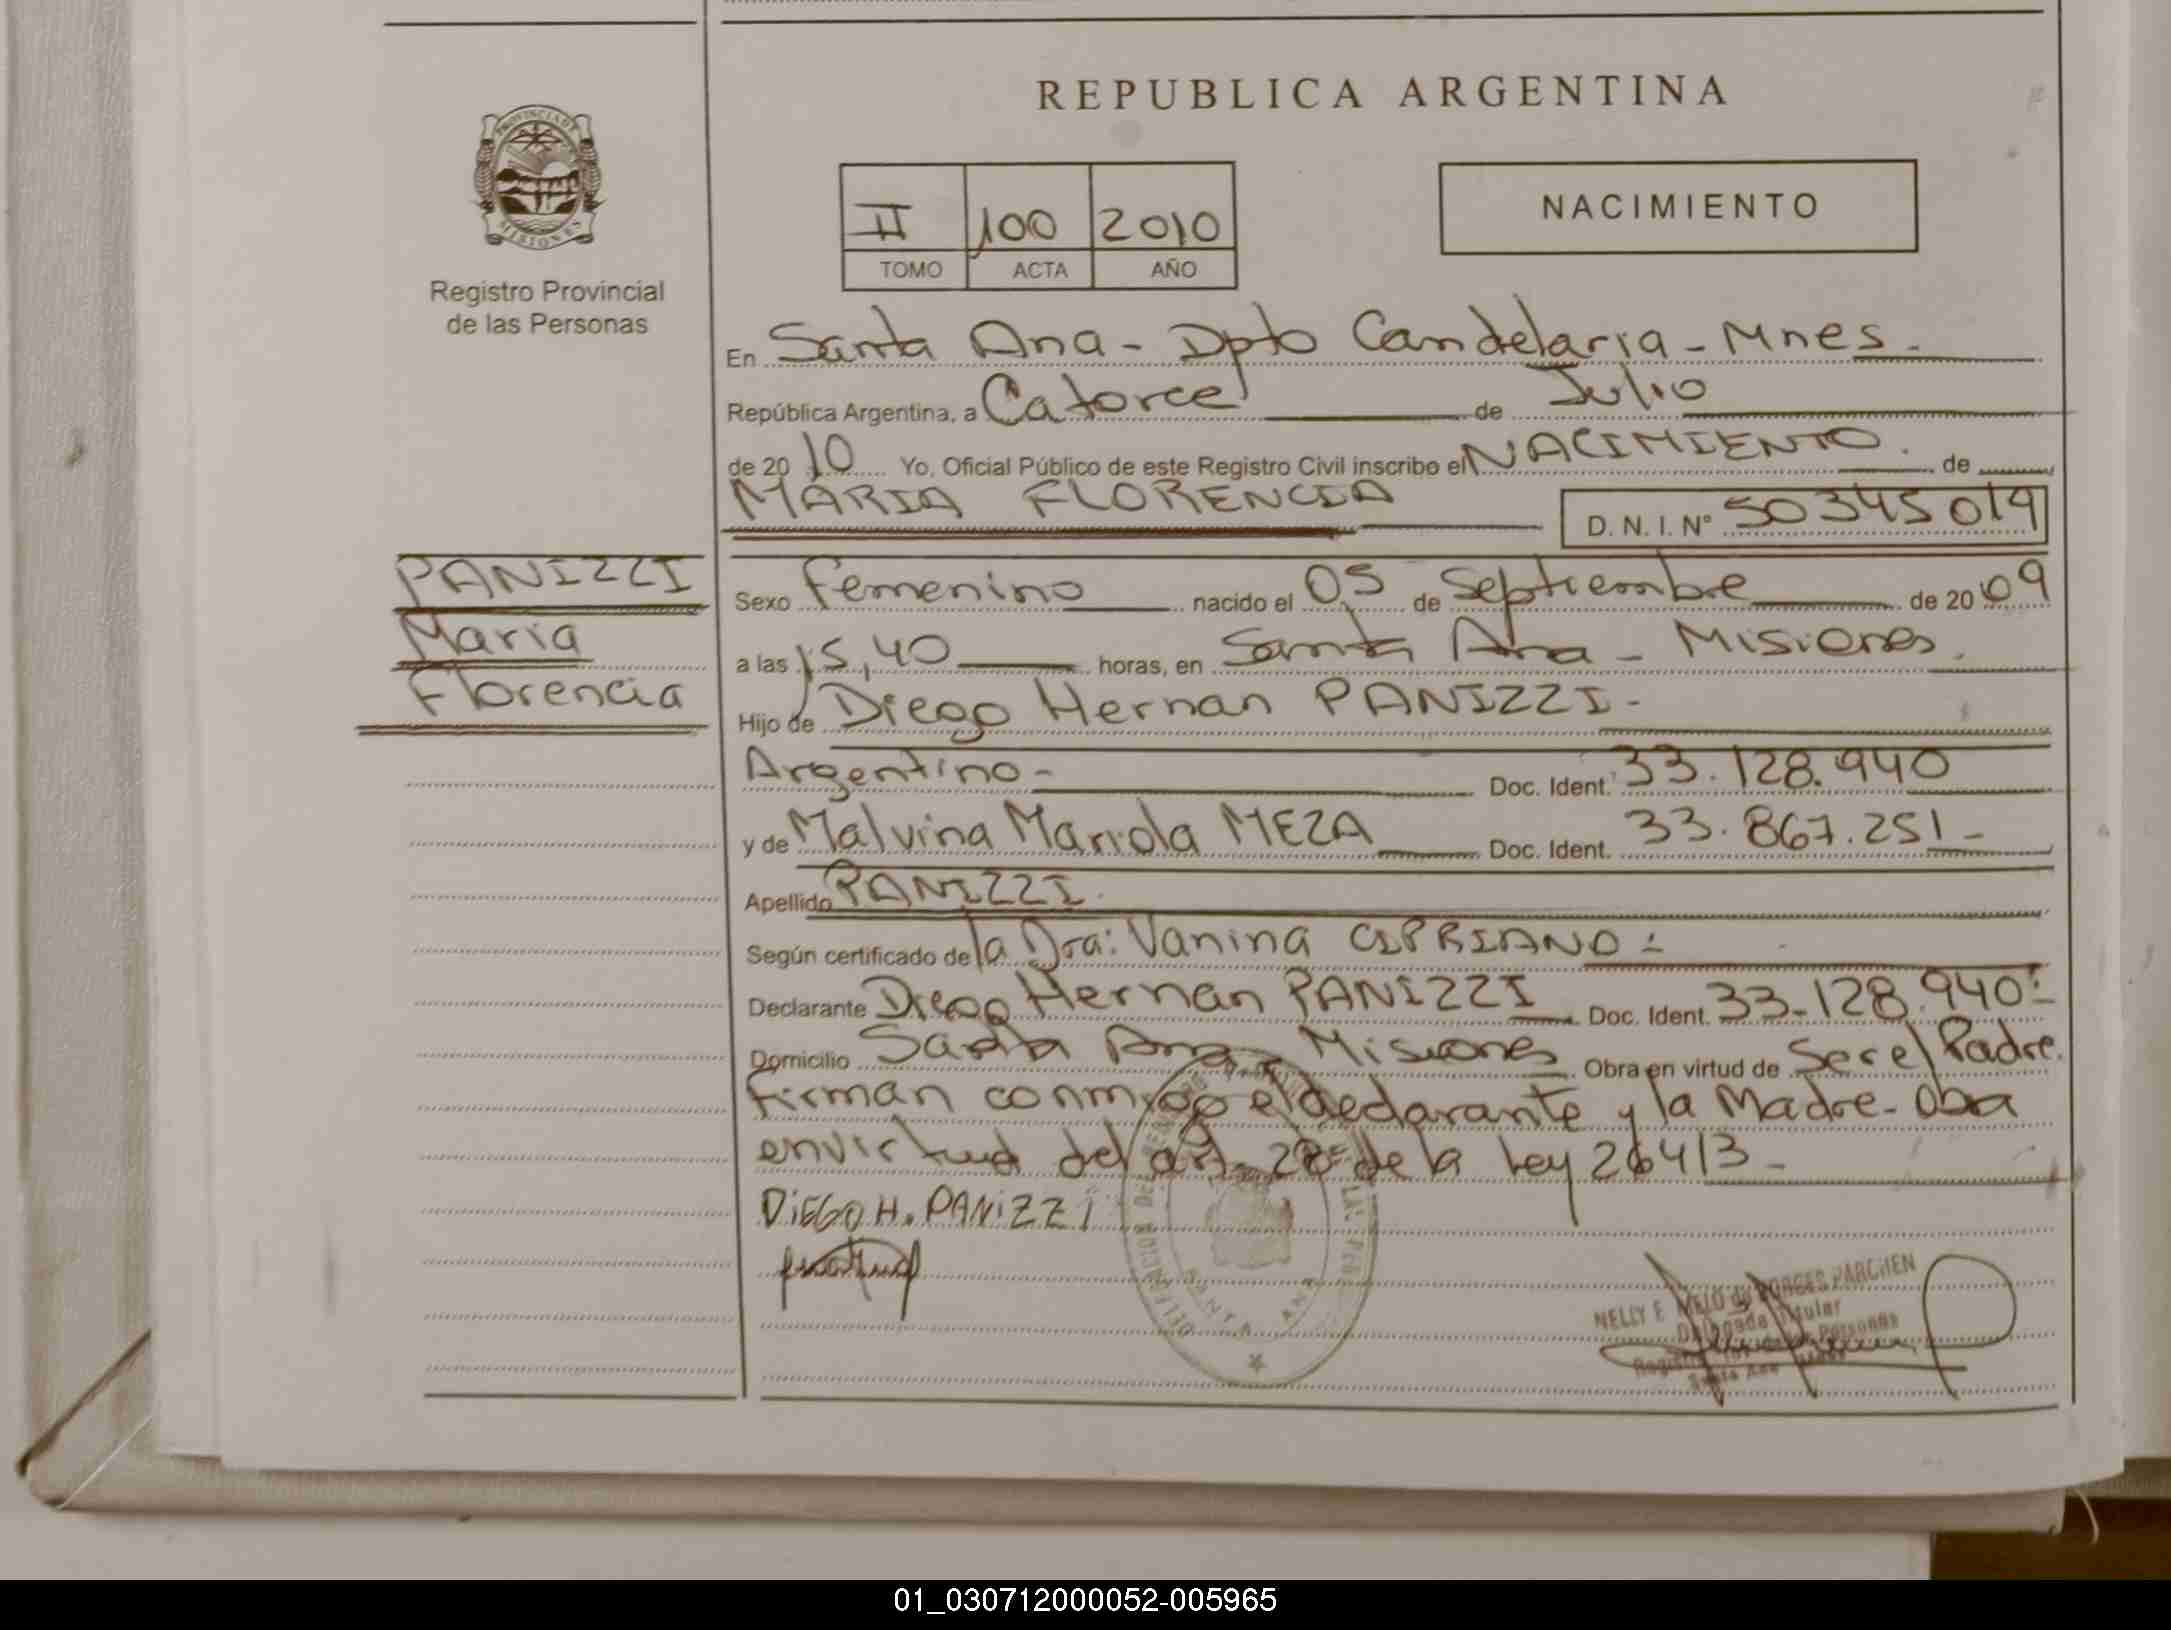 REPUBLICA ARGENTINA
PROVINCIA DE
MISIONES
Registro Provincial
de las Personas
II 100 2010
TOMO ACTA AÑO
NACIMIENTO
En Santa Ana - Dpto Candelaria - Mnes.
República Argentina, a Catorce de Julio
de 2010 Yo, Oficial Público de este Registro Civil inscribo el NACIMIENTO. de
MARIA FLORENCIA D. N. I. N° 50345019
PANIZZI
Maria
Florencia
Sexo Femenino nacido el 05 de Septiembre de 2009
a las 15,40 horas, en Santa Ana - Misiones.
Hijo de Diego Hernan PANIZZI -
Argentino - Doc. Ident. 33.128.940
y de Malvina Mariola MEZA Doc. Ident. 33.867.251 -
Apellido PANIZZI.
Según certificado de la Dra: Vanina CIPRIANO :
Declarante Diego Hernan PANIZZI Doc. Ident. 33-128.940:
Domicilio Santa Ana - Misiones Obra en virtud de Ser el Padre.
Firman conmigo el declarante y la Madre - Obra
en virtud del art. 28 de la Ley 26413 -
DiEGO H. PANiZZi
SANTA ANA
NELLY E. MELO de BORGES PARCHEN
Delegada Titular
Santa Ana
01_030712000052-005965